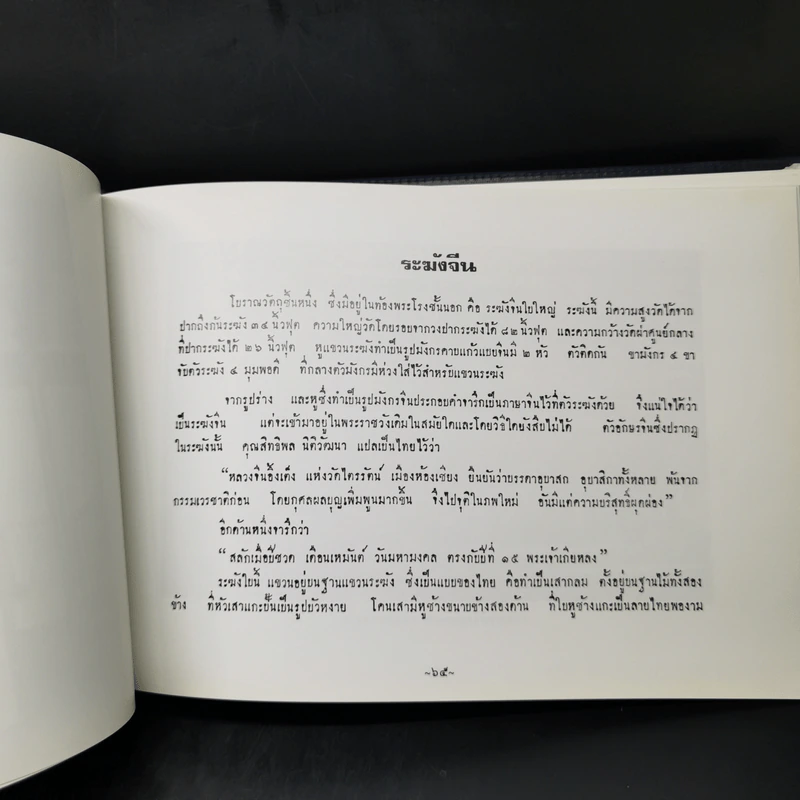 ระฆังจีน
โบราณวัตถุชิ้นหนึ่ง ซึ่งมีอยู่ในท้องพระโรงชั้นนอก คือ ระฆังจีนใบใหญ่ ระฆังนี้ มีความสูงวัดได้จาก
ปากถึงก้นระฆัง ๓๔ นิ้วฟุต ความใหญ่วัดโดยรอบจากวงปากระฆังได้ ๘๒ นิ้วฟุต และความกว้างวัดผ่าศูนย์กลาง
ที่ปากระฆังได้ ๒๖ นิ้วฟุต หูแขวนระฆังทำเป็นรูปมังกรคายแก้วแบบจีนมี ๒ หัว ตัวติดกัน ขามังกร ๔ ขา
จับตัวระฆัง ๔ มุมพอดี ที่กลางตัวมังกรมีห่วงใส่ไว้สำหรับแขวนระฆัง
จากรูปร่าง และหูซึ่งทำเป็นรูปมังกรจีนประกอบคำจารึกเป็นภาษาจีนไว้ที่ตัวระฆังด้วย จึงแน่ใจได้ว่า
เป็นระฆังจีน แต่จะเข้ามาอยู่ในพระราชวังเดิมในสมัยใดและโดยวิธีใดยังสืบไม่ได้ ตัวอักษรจีนซึ่งปรากฏ
ในระฆังนั้น คุณสิทธิพล นิติวัฒนา แปลเป็นไทยไว้ว่า
“หลวงจีนอิ้งเต็ง แห่งวัดไตรรัตน์ เมืองห้องเซียง ยืนยันว่าบรรดาอุบาสก อุบาสิกาทั้งหลาย พ้นจาก
กรรมเวรชาติก่อน โดยกุศลผลบุญเพิ่มพูนมากขึ้น จึงไปจุติในภพใหม่ อันมีแต่ความบริสุทธิ์ผุดผ่อง”
อีกด้านหนึ่งจารึกว่า
“สลักเมื่อปีชวด เดือนเหมันต์ วันมหามงคล ตรงกับปีที่ ๑๕ พระเจ้าเกียหลง”
ระฆังใบนี้ แขวนอยู่บนฐานแขวนระฆัง ซึ่งเป็นแบบของไทย คือทำเป็นเสากลม ตั้งอยู่บนฐานไม้ทั้งสอง
ข้าง ที่หัวเสาแกะขึ้นเป็นรูปบัวหงาย โคนเสามีหูช้างขนาบข้างสองด้าน ที่ใบหูช้างแกะเป็นลายไทยพองาม
~๖๕~